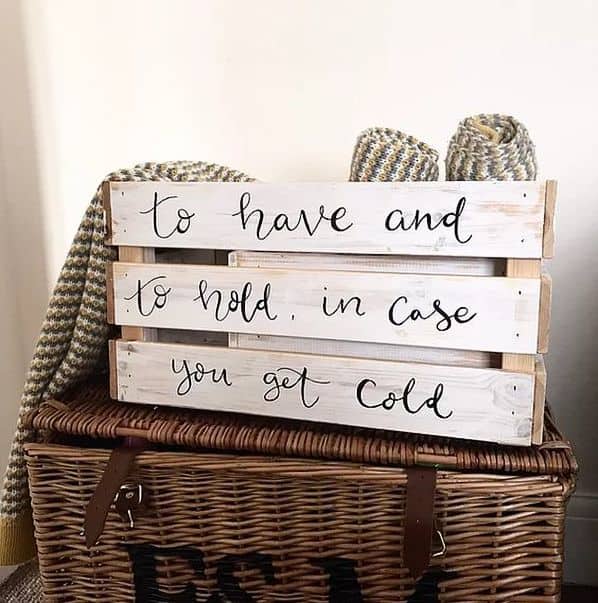 to have and
to hold, in case
you get cold